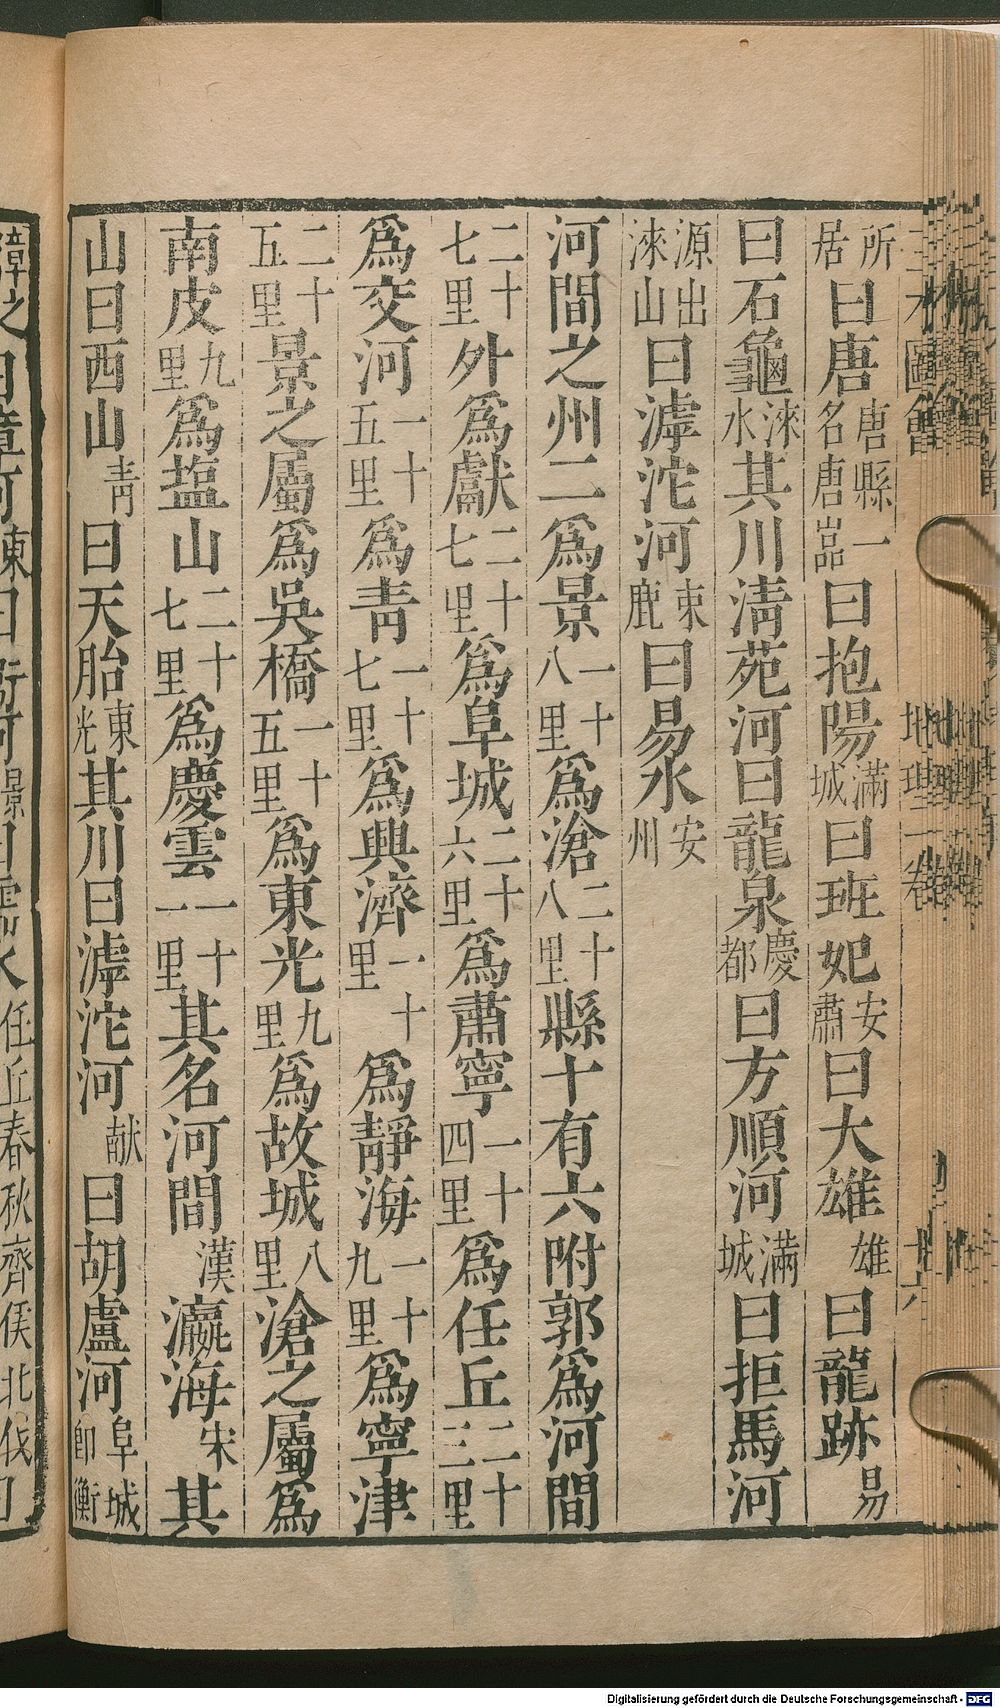 所居曰唐唐縣一名唐嵓曰抱陽滿城曰班妃安肅曰大雄雄曰龍跡易
曰石龜淶水其川淸苑河曰龍泉慶都曰方順河滿城曰拒馬河
源出淶山曰滹沱河束鹿曰易水安州
河間之州二爲景一十八里爲滄二十八里縣十有六附郭爲河間
二十七里外爲獻二十七里爲阜城二十六里爲肅寧一十四里爲任丘二十三里
爲交河一十五里爲靑一十七里爲興濟一十里爲靜海一十九里爲寧津
二十五里景之屬爲吳橋一十五里爲東光九里爲故城八里滄之屬爲
南皮九里爲塩山二十七里爲慶雲一十一里其名河間漢瀛海宋其
山曰西山靑曰天胎東光其川曰滹沱河献曰胡盧河阜城卽衡
漳之
任丘春秋齊侯北伐
三才圖會
地理一卷
十六
Digitalisierung gefördert durch die Deutsche Forschungsgemeinschaft - DFG